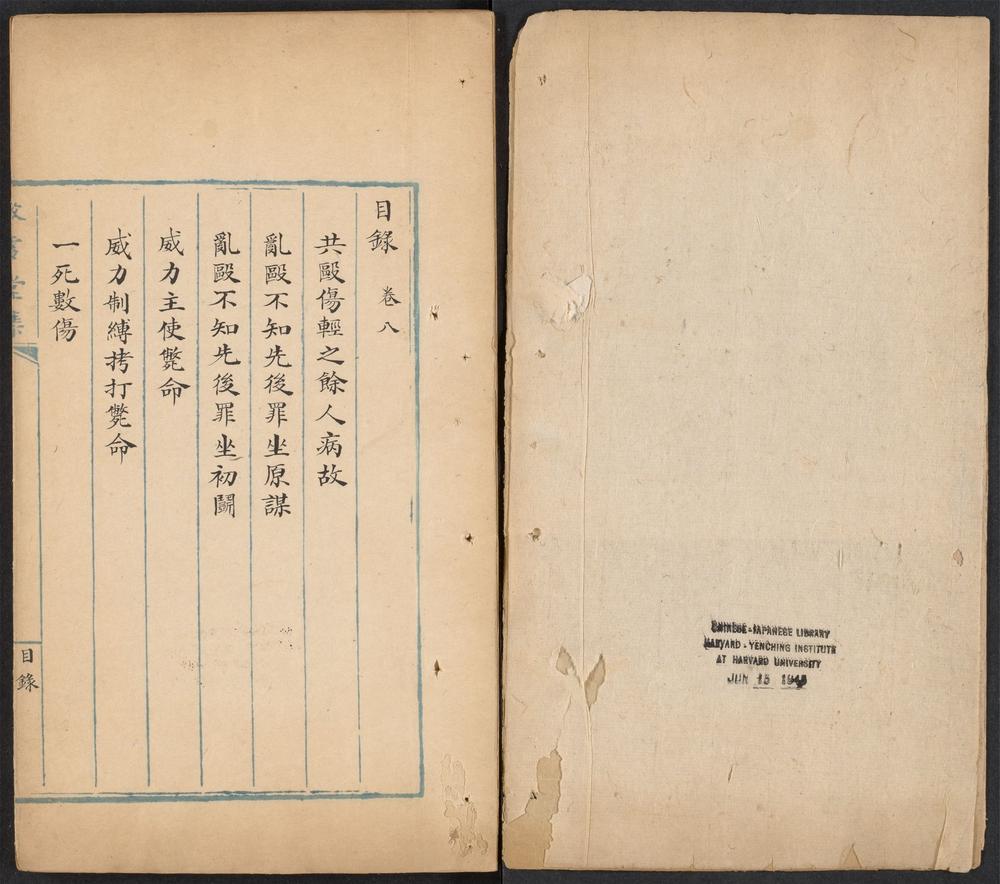 目錄 卷八
共毆傷輕之餘人病故
亂毆不知先後罪坐原謀
亂毆不知先後罪坐初鬭
威力主使斃命
威力制縛拷打斃命
一死數傷
目錄
CHINESE-JAPANESE LIBRARY
HARVARD-YENCHING INSTITUTE
AT HARVARD UNIVERSITY
JUN 15